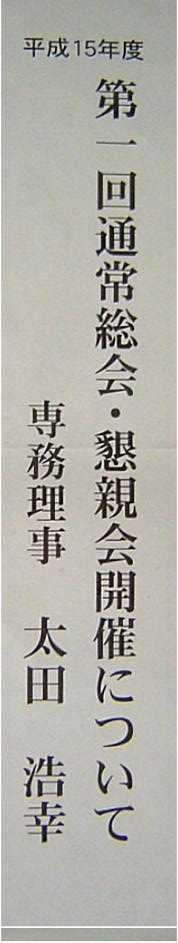 平成15年度
第一回通常総会・懇親会開催について
専務理事 太田 浩幸